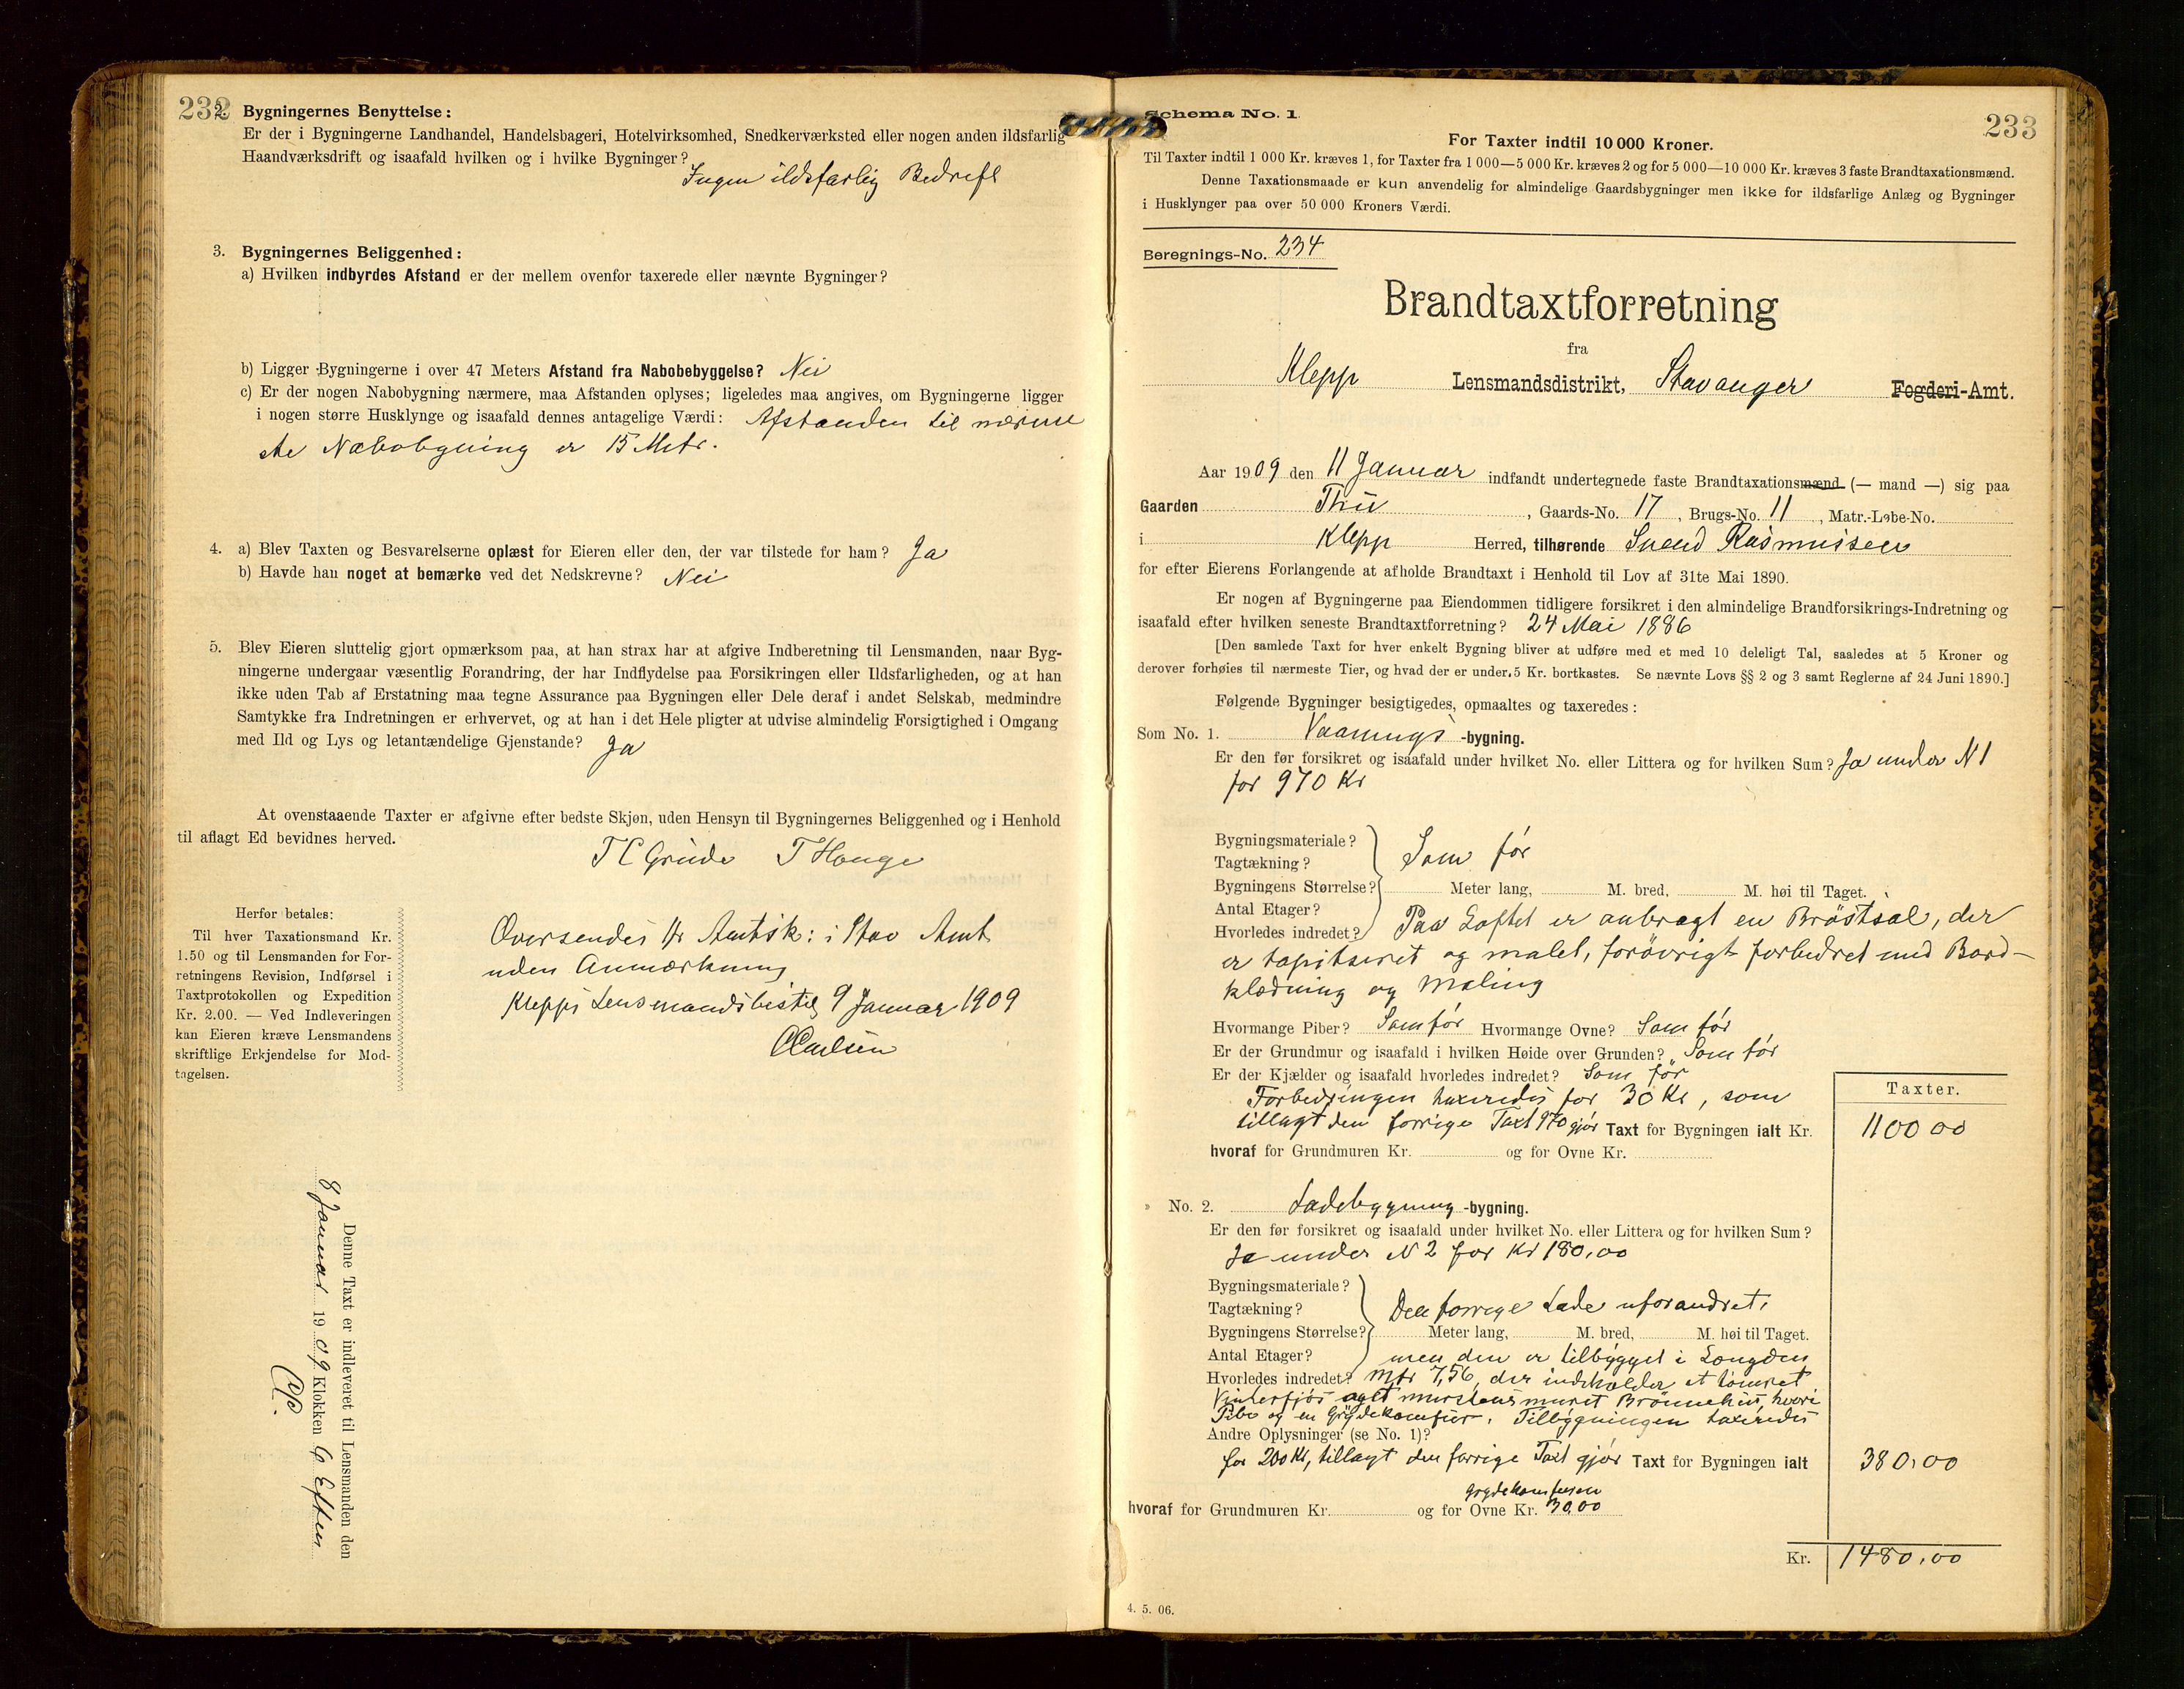 232
2. Bygningernes Benyttelse:
Er der i Bygningerne Landhandel, Handelsbageri, Hotelvirksomhed, Snedkerværksted eller nogen anden ildsfarlig
Haandværksdrift og isaafald hvilken og i hvilke Bygninger?
Ingen ildsfarlig Bedrift
3. Bygningernes Beliggenhed:
a) Hvilken indbyrdes Afstand er der mellem ovenfor taxerede eller nævnte Bygninger?
b) Ligger Bygningerne i over 47 Meters Afstand fra Nabobebyggelse? Nei
c) Er der nogen Nabobygning nærmere, maa Afstanden oplyses; ligeledes maa angives, om Bygningerne ligger
i nogen større Husklynge og isaafald dennes antagelige Værdi: Afstanden til nærme
ste Nabobgning er 15 Metr.
4. a) Blev Taxten og Besvarelserne oplæst for Eieren eller den, der var tilstede for ham? Ja
b) Havde han noget at bemærke ved det Nedskrevne? Nei
5. Blev Eieren sluttelig gjort opmærksom paa, at han strax har at afgive Indberetning til Lensmanden, naar Byg-
ningerne undergaar væsentlig Forandring, der har Indflydelse paa Forsikringen eller Ildsfarligheden, og at han
ikke uden Tab af Erstatning maa tegne Assurance paa Bygningen eller Dele deraf i andet Selskab, medmindre
Samtykke fra Indretningen er erhvervet, og at han i det Hele pligter at udvise almindelig Forsigtighed i Omgang
med Ild og Lys og letantændelige Gjenstande? Ja
At ovenstaaende Taxter er afgivne efter bedste Skjøn, uden Hensyn til Bygningernes Beliggenhed og i Henhold
til aflagt Ed bevidnes herved.
T C Grude T Houge
Herfor betales:
Til hver Taxationsmand Kr.
1.50 og til Lensmanden for For-
retningens Revision, Indførsel i
Taxtprotokollen og Expedition
Kr. 2.00. — Ved Indleveringen
kan Eieren kræve Lensmandens
skriftlige Erkjendelse for Mod-
tagelsen.
Oversendes Hr Amtsk: i Stav Amt
uden Anmærkning
Klepps Lensmandsbestil 9 Januar 1909
Denne Taxt er indleveret til Lensmanden den
8 Januar 1909 Klokken 6 Eftm
Schema No. 1
233
For Taxter indtil 10 000 Kroner.
Til Taxter indtil 1 000 Kr. kræves 1, for Taxter fra 1 000—5 000 Kr. kræves 2 og for 5 000—10 000 Kr. kræves 3 faste Brandtaxationsmænd.
Denne Taxationsmaade er kun anvendelig for almindelige Gaardsbygninger men ikke for ildsfarlige Anlæg og Bygninger
i Husklynger paa over 50 000 Kroners Værdi.
Beregnings-No. 234
Brandtaxtforretning
fra
Klepp Lensmandsdistrikt, Stavanger Fogderi-Amt.
Aar 1909 den 11 Januar indfandt undertegnede faste Brandtaxationsmænd (— mand —) sig paa
Gaarden Thu, Gaards-No. 17, Brugs-No. 11, Matr.-Løbe-No.
i Klepp Herred, tilhørende Svend Rasmussen
for efter Eierens Forlangende at afholde Brandtaxt i Henhold til Lov af 31te Mai 1890.
Er nogen af Bygningerne paa Eiendommen tidligere forsikret i den almindelige Brandforsikrings-Indretning og
isaafald efter hvilken seneste Brandtaxtforretning? 24 Mai 1886
[Den samlede Taxt for hver enkelt Bygning bliver at udføre med et med 10 deleligt Tal, saaledes at 5 Kroner og
derover forhøies til nærmeste Tier, og hvad der er under 5 Kr. bortkastes. Se nævnte Lovs §§ 2 og 3 samt Reglerne af 24 Juni 1890.]
Følgende Bygninger besigtigedes, opmaaltes og taxeredes:
Som No. 1. Vaanings -bygning.
Er den før forsikret og isaafald under hvilket No. eller Littera og for hvilken Sum? Ja under N 1
for 970 Kr
Bygningsmateriale?
Tagtækning? Som før
Bygningens Størrelse? Meter lang, M. bred, M. høi til Taget.
Antal Etager?
Hvorledes indredet? Paa Loftet er anbragt en Bröstsal, der
er tapitseret og malet, forövrigt forbedret med Bord-
klædning og Maling
Hvormange Piber? Som før Hvormange Ovne? Som før
Er der Grundmur og isaafald i hvilken Høide over Grunden? Som før
Er der Kjælder og isaafald hvorledes indredet? Som før
Taxter.
Forbedringen taxeredes for 30 Kr, som
tillagt den forrige Taxt 970 gjør Taxt for Bygningen ialt Kr. 1100 00
hvoraf for Grundmuren Kr. og for Ovne Kr.
" No. 2. Ladebygning -bygning.
Er den før forsikret og isaafald under hvilket No. eller Littera og for hvilken Sum?
Ja under N 2 for Kr 180,00
Bygningsmateriale?
Tagtækning? Den forrige Lade uforandret,
Bygningens Størrelse? Meter lang, M. bred, M. høi til Taget.
Antal Etager? men den er tilbygget i Længden
Hvorledes indredet? Mtr 7,56, der indeholder et tømret
Vinterfjøs og et murstensmuret Brönnehus, hvori
Pibe og en Grydekomfur. Tilbygningen taxeredes
Andre Oplysninger (se No. 1)?
for 200 Kr, tillagt den forrige Taxt gjør Taxt for Bygningen ialt 380,00
Grydekomfuren
hvoraf for Grundmuren Kr. og for Ovne Kr. 30,00
Kr. 1480,00
4. 5. 06.